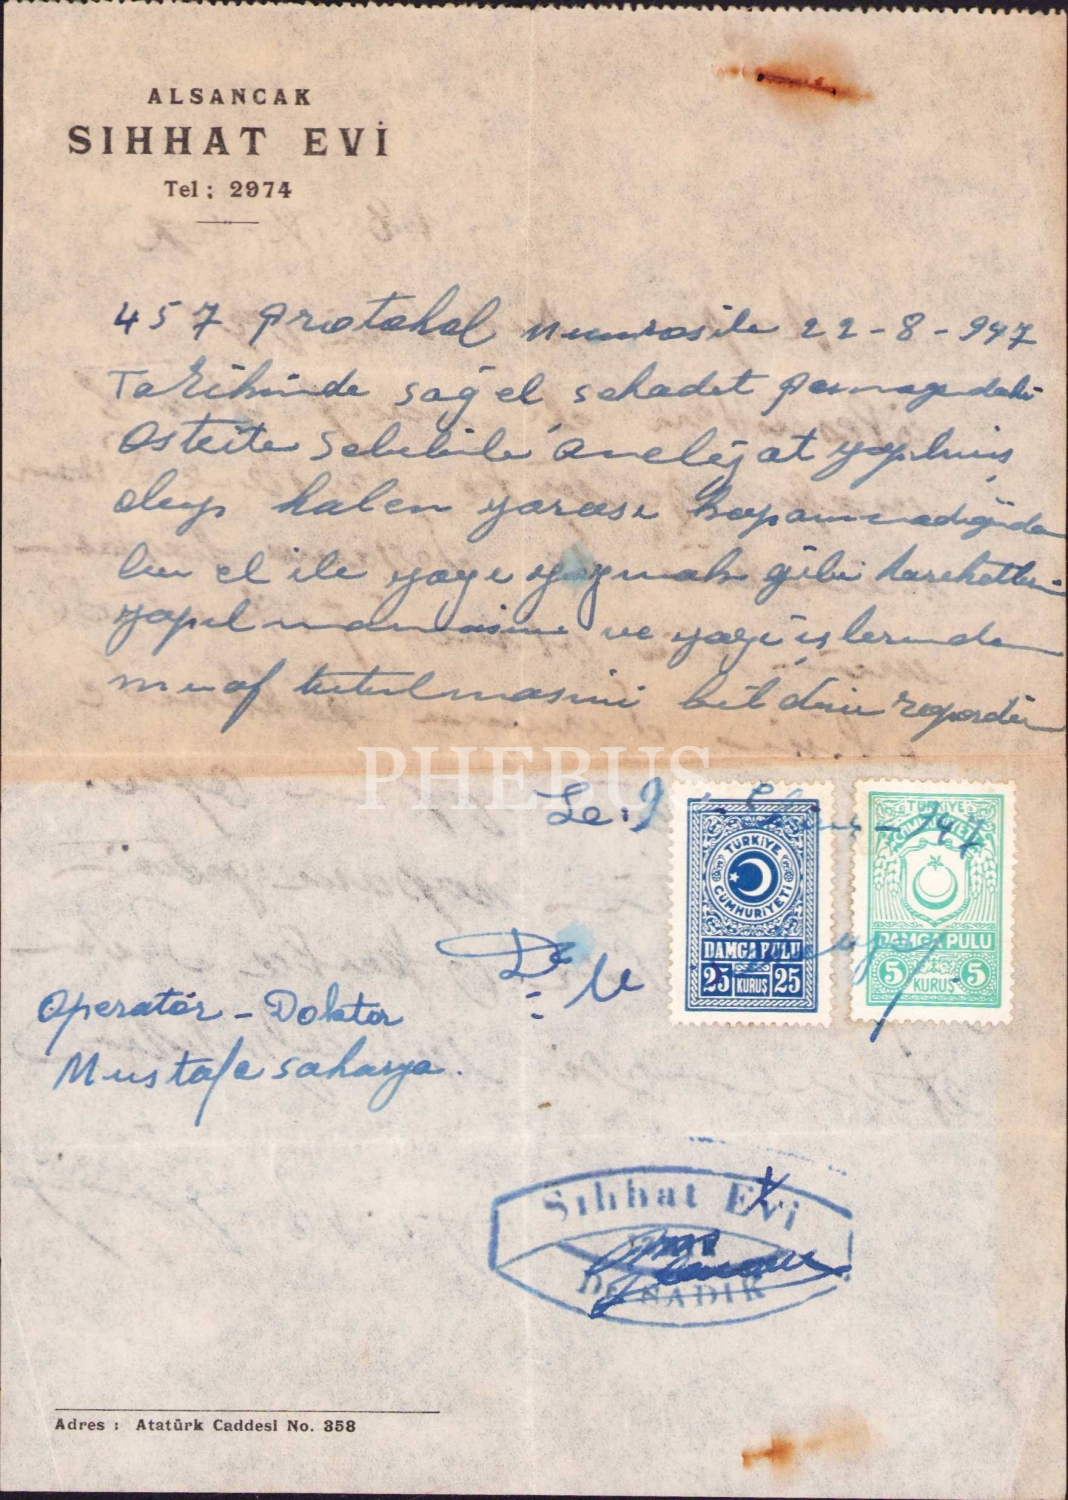 ALSANCAK
SIHHAT EVİ
Tel : 2974
457 protokol numrosile 22-8-947
Tarihinde sağ el şehadet parmağındaki
Osteite sebebile ameliyat yapılmış
olup halen yarası kapanmadığından
bu el ile yazı yazmak gibi hareketleri
yapılmamasını ve yazı işlerinden
muaf tutulmasını bildirir rapordur
PHEBUS
İz: Ekim - 947
Dr M
TÜRKİYE
CUMHURİYETİ
DAMGA PULU
25 KURUŞ 25
TÜRKİYE
CUMHURİYETİ
DAMGA PULU
5 KURUŞ 5
Operatör - Doktor
Mustafa Sakarya.
Sıhhat Evi
İZMİR
ALSANCAK
Adres : Atatürk Caddesi No. 358